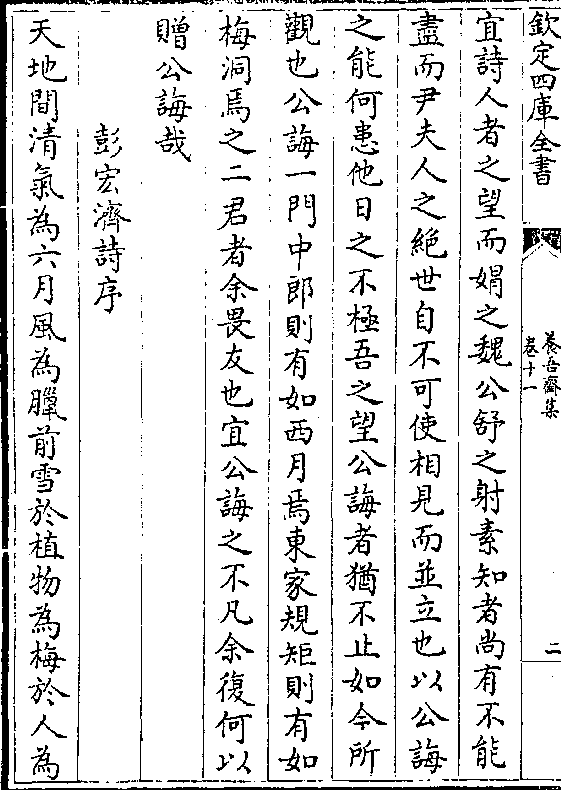 欽定四庫全書
養吾齋集
卷十一
二
宜詩人者之望而娟之魏公舒之射素知者尚有不能
盡而尹夫人之絶世自不可使相見而並立也以公誨
之能何患他日之不極吾之望公誨者猶不止如今所
觀也公誨一門中郎則有如西月焉東家規矩則有如
梅洞焉之二君者余畏友也宜公誨之不凡余復何以
贈公誨哉
彭宏濟詩序
天地間清氣為六月風為臘前雪於植物為梅於人為